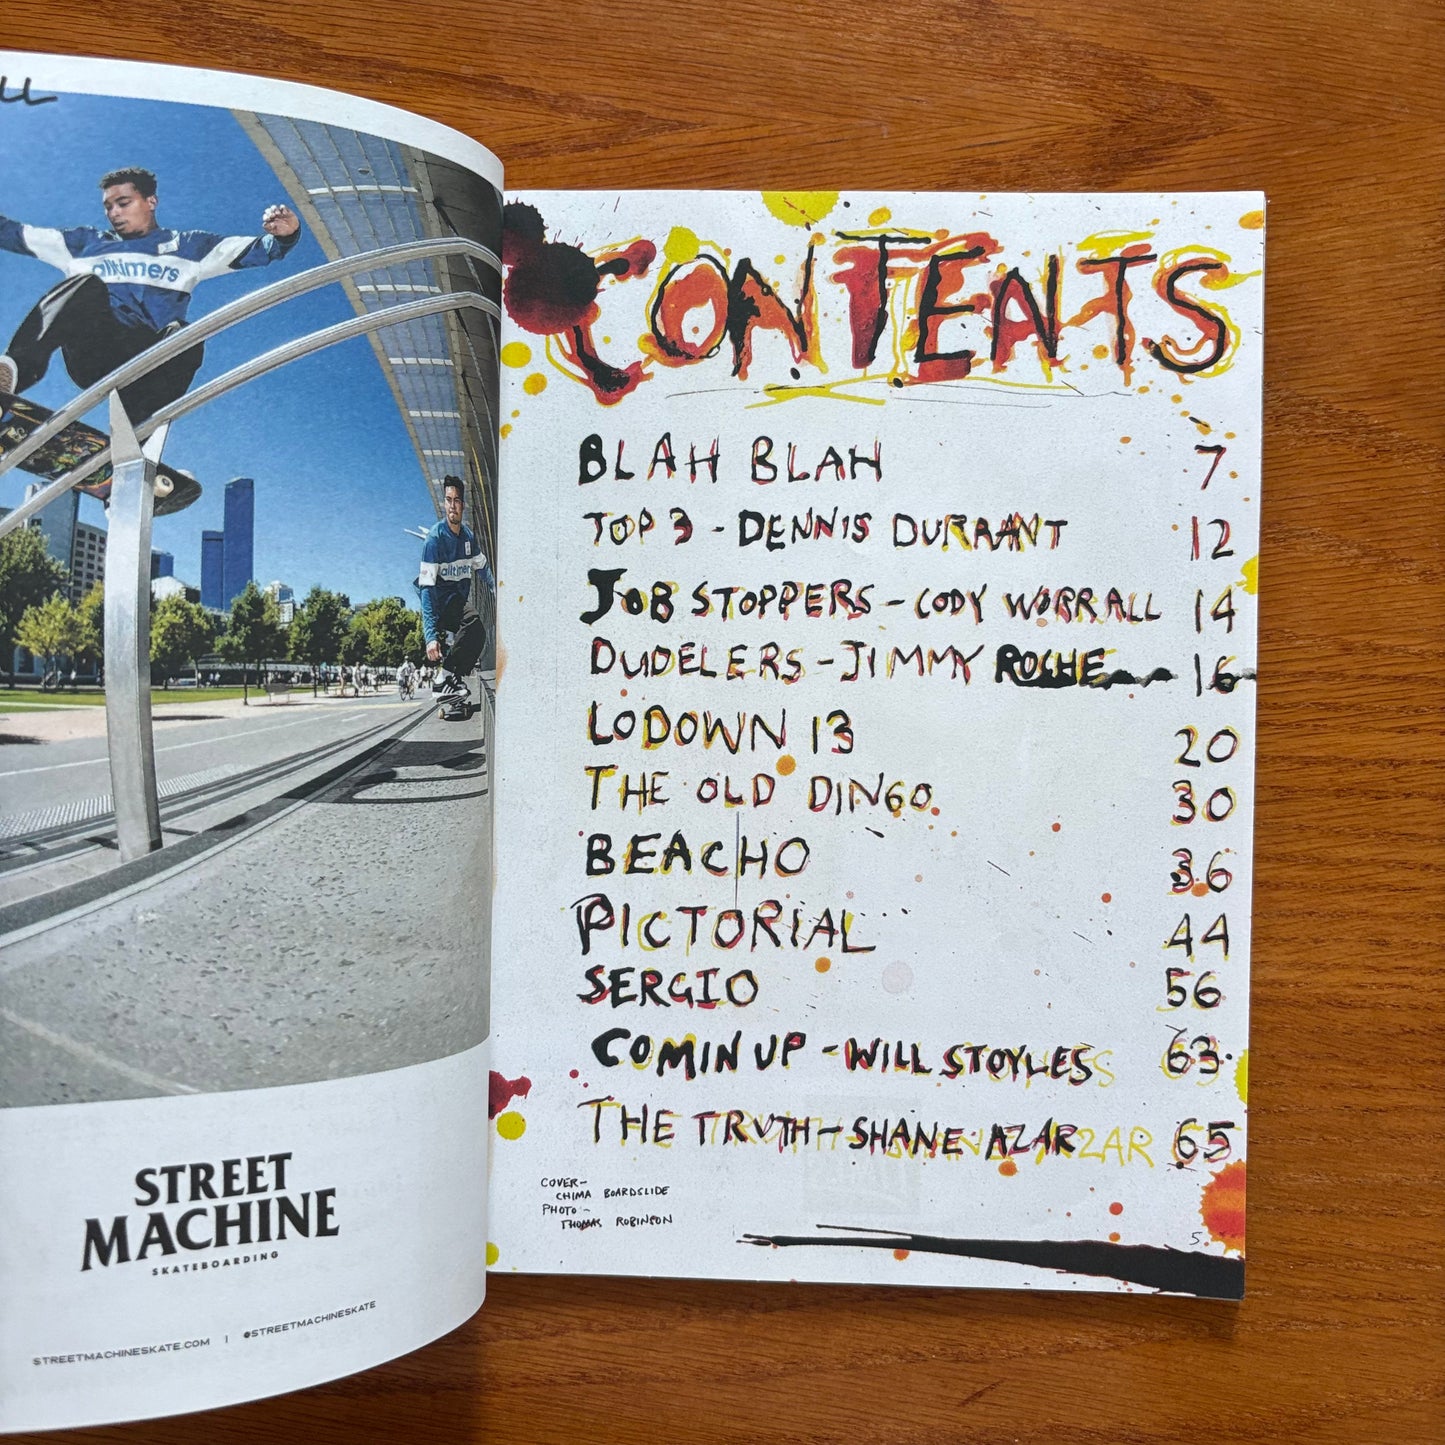 LL
alltimers
alltimers
STREET
MACHINE
SKATEBOARDING
STREETMACHINESKATE.COM | @STREETMACHINESKATE
CONTENTS
BLAH BLAH 7
TOP 3 - DENNIS DURRANT 12
JOB STOPPERS - CODY WORRALL 14
DUDELERS - JIMMY ROCHE 16
LODOWN 13 20
THE OLD DINGO 30
BEACHO 36
PICTORIAL 44
SERGIO 56
COMIN UP - WILL STOYLES 63.
THE TRUTH - SHANE AZAR 65
COVER-
CHIMA BOARDSLIDE
PHOTO-
THOMAS ROBINSON
5.